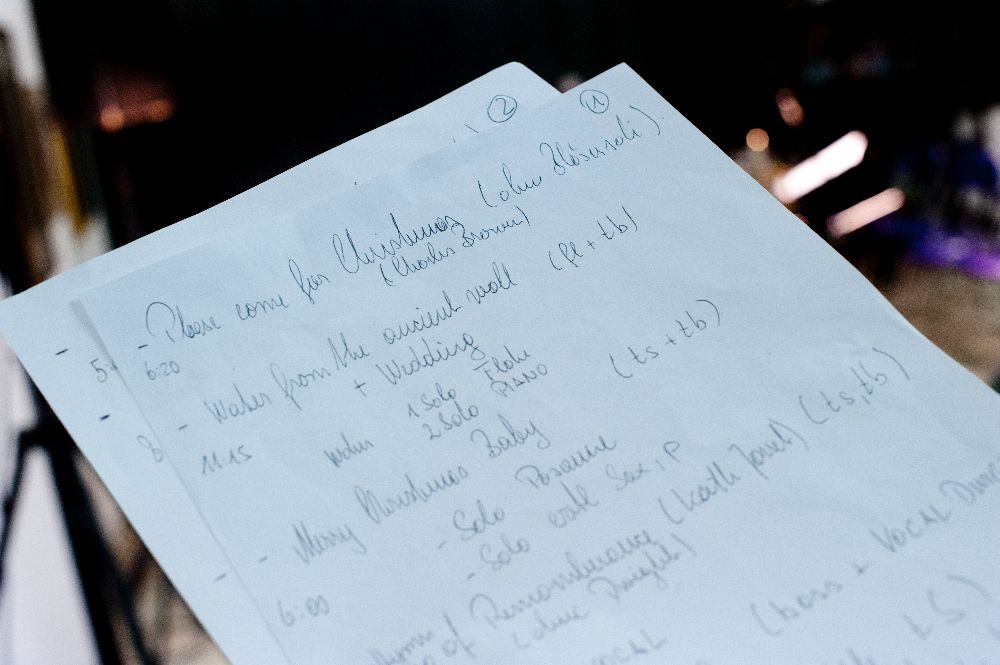 1
- Please come for Christmas (ohne Bläsersoli).
(Charles Brown)
6:20
- Water from the ancient well (fl + tb)
+ Wedding
11:15 Water 1 Solo Flöte
2 Solo PIANO
- Merry Christmas Baby (ts + tb)
- Solo Posaune
- Solo Sax, P
6:00
Hymn of Remembrance (Keith Jarrett) (ts, tb)
(ohne Dwight)
(bass + VOCAL
tS)
2
-
5:
-
8
-